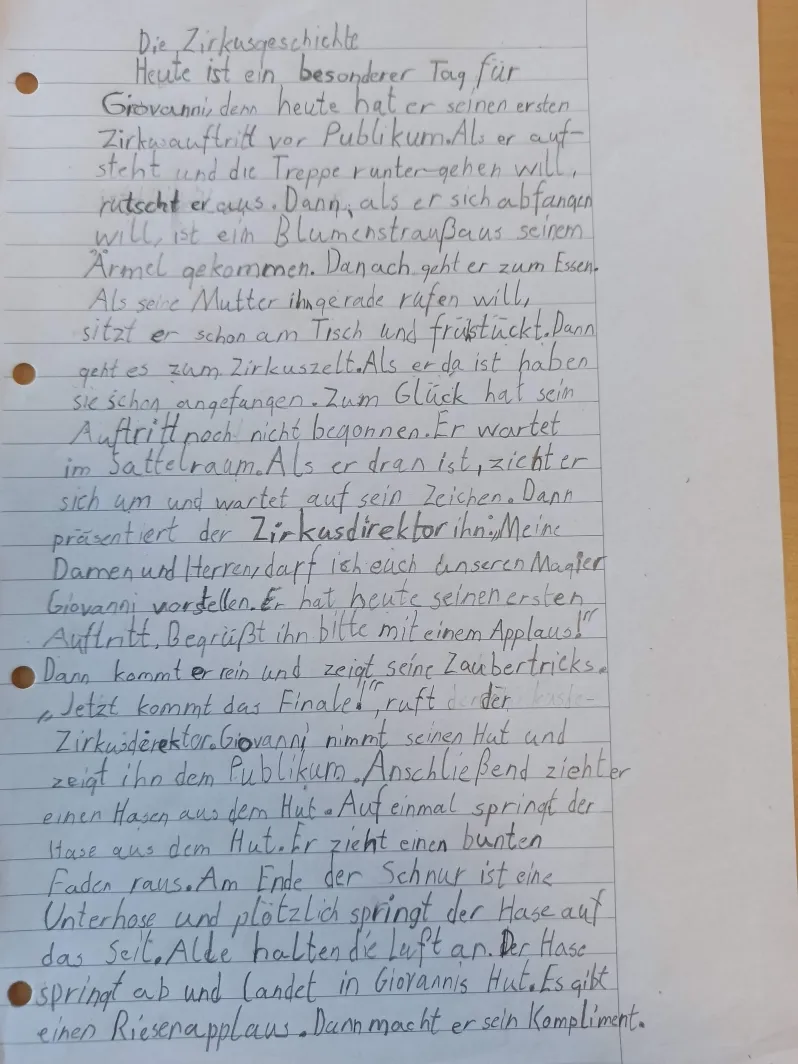 Die Zirkusgeschichte
Heute ist ein besonderer Tag für
Giovanni, denn heute hat er seinen ersten
Zirkusauftritt vor Publikum. Als er auf-
steht und die Treppe runter gehen will,
rutscht er aus. Dann, als er sich abfangen
will, ist ein Blumenstrauß aus seinem
Ärmel gekommen. Danach geht er zum Essen.
Als seine Mutter ihn gerade rufen will,
sitzt er schon am Tisch und frühstückt. Dann
geht es zum Zirkuszelt. Als er da ist haben
sie schon angefangen. Zum Glück hat sein
Auftritt noch nicht begonnen. Er wartet
im Sattelraum. Als er dran ist, zieht er
sich um und wartet auf sein Zeichen. Dann
präsentiert der Zirkusdirektor ihn: „Meine
Damen und Herren, darf ich euch unseren Magier
Giovanni vorstellen. Er hat heute seinen ersten
Auftritt. Begrüßt ihn bitte mit einem Applaus!"
Dann kommt er rein und zeigt seine Zaubertricks.
„Jetzt kommt das Finale!", ruft der
Zirkusdirektor. Giovanni nimmt seinen Hut und
zeigt ihn dem Publikum. Anschließend zieht er
einen Hasen aus dem Hut. Auf einmal springt der
Hase aus dem Hut. Er zieht einen bunten
Faden raus. Am Ende der Schnur ist eine
Unterhose und plötzlich springt der Hase auf
das Seil. Alle halten die Luft an. Der Hase
springt ab und landet in Giovannis Hut. Es gibt
einen Riesenapplaus. Dann macht er sein Kompliment.